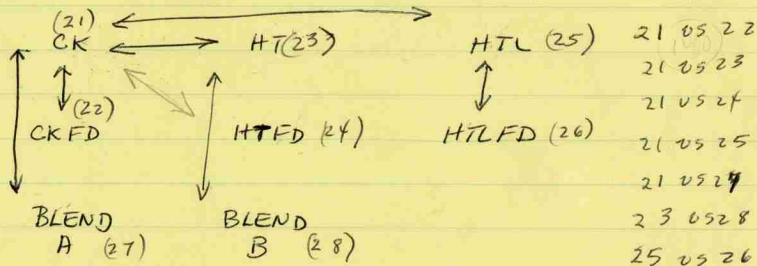 (21)
CK HT(23) HTL (25)
(22)
CKFD HTFD (24) HTLFD (26)
BLEND BLEND
A (27) B (28)
21 vs 22
21 vs 23
21 vs 24
21 vs 25
21 vs 27
23 vs 28
25 vs 26